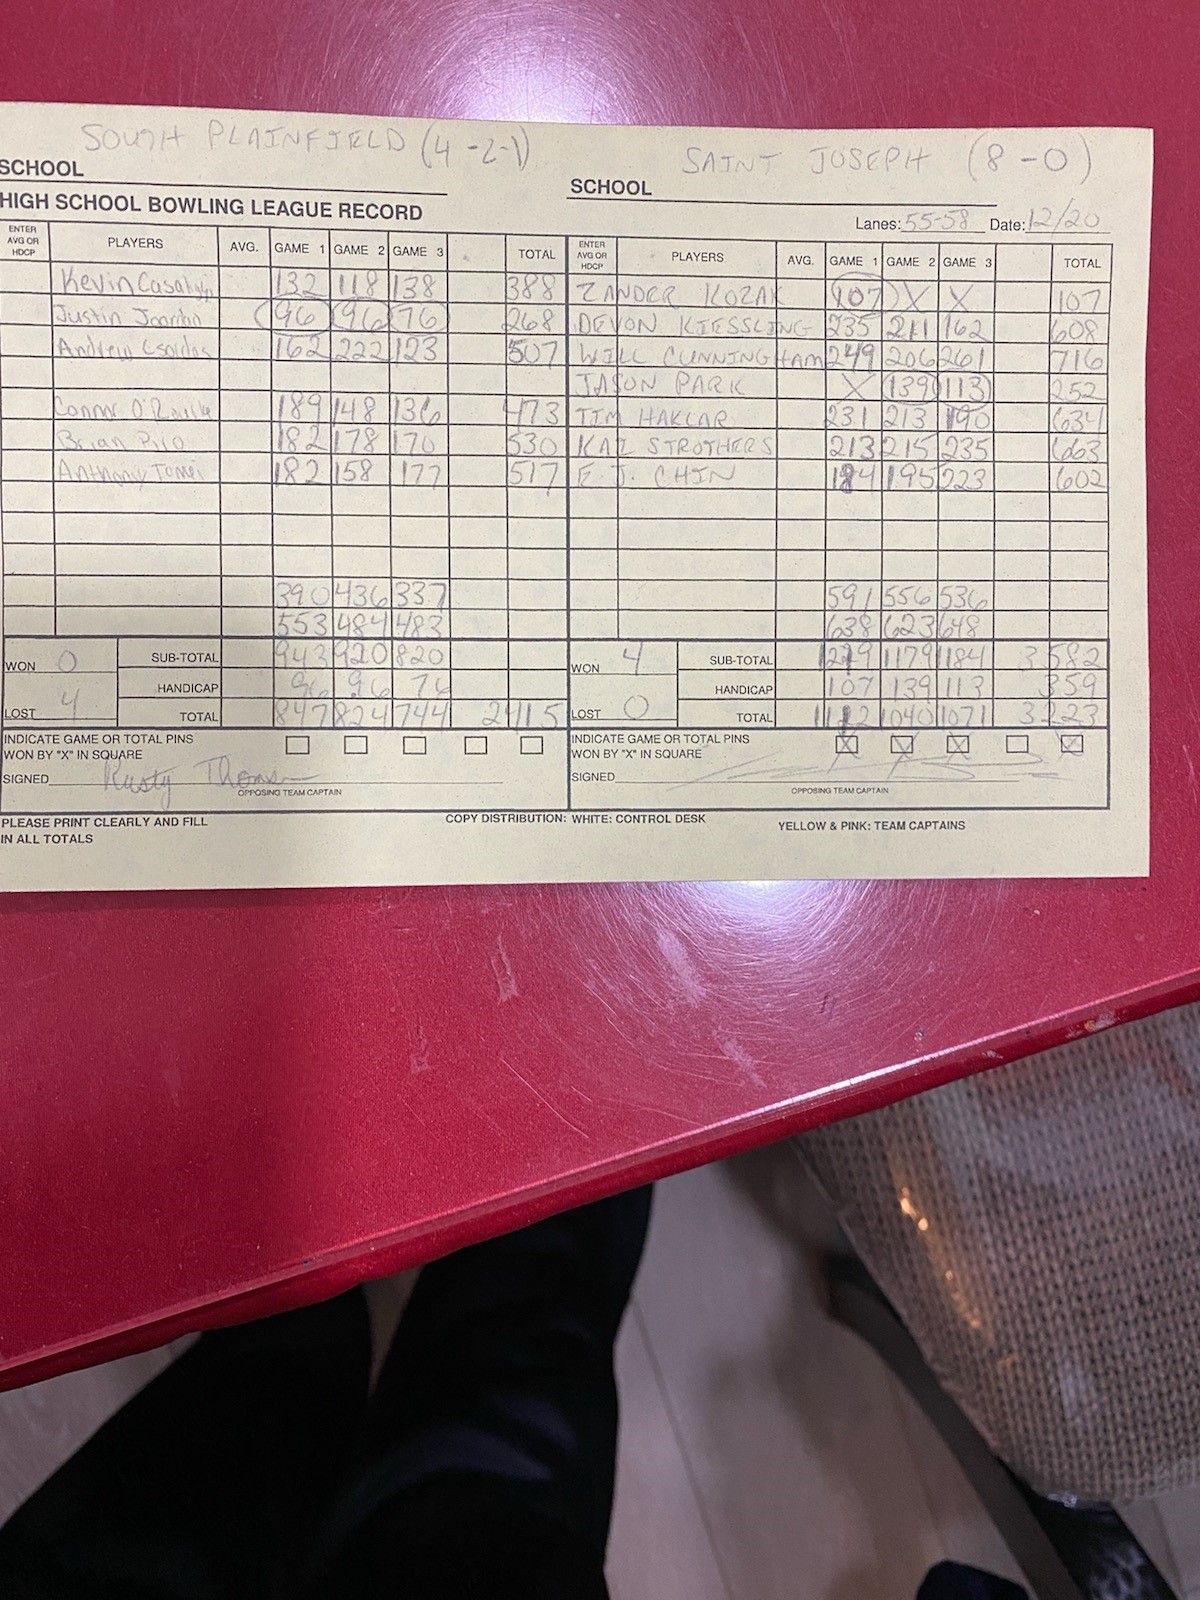 SOUTH PLAINFIELD (4-2-1)
SCHOOL
SAINT JOSEPH (8-0)
SCHOOL
HIGH SCHOOL BOWLING LEAGUE RECORD
Lanes: 55-58 Date: 12/20
ENTER AVG OR HDCP PLAYERS AVG. GAME 1 GAME 2 GAME 3 TOTAL ENTER AVG OR HDCP PLAYERS AVG. GAME 1 GAME 2 GAME 3 TOTAL
Kevin 132 118 138 388 ZANDER KOZAK 107 X X 107
Justin 96 96 76 268 DEVON KIESSLING 235 211 162 608
Andrew 162 222 123 507 WILL CUNNINGHAM 249 206 261 716
JASON PARK X 139 113 252
Connor O'Rourke 189 148 136 473 TIM HAKLAR 231 213 190 634
Brian 182 178 170 530 KAI STROTHERS 213 215 235 663
Anthony 182 158 177 517 E.J. CHIN 184 195 223 602
390 436 337 591 556 536
553 484 483 638 623 648
WON 0 SUB-TOTAL 943 920 820 WON 4 SUB-TOTAL 1219 1179 1184 3582
HANDICAP 96 96 76 HANDICAP 107 139 113 359
LOST 4 TOTAL 847 824 744 2415 LOST 0 TOTAL 1112 1040 1071 3223
INDICATE GAME OR TOTAL PINS WON BY "X" IN SQUARE
INDICATE GAME OR TOTAL PINS WON BY "X" IN SQUARE X X X X
SIGNED Rusty Thomsen
OPPOSING TEAM CAPTAIN
SIGNED
OPPOSING TEAM CAPTAIN
PLEASE PRINT CLEARLY AND FILL
IN ALL TOTALS
COPY DISTRIBUTION: WHITE: CONTROL DESK YELLOW & PINK: TEAM CAPTAINS